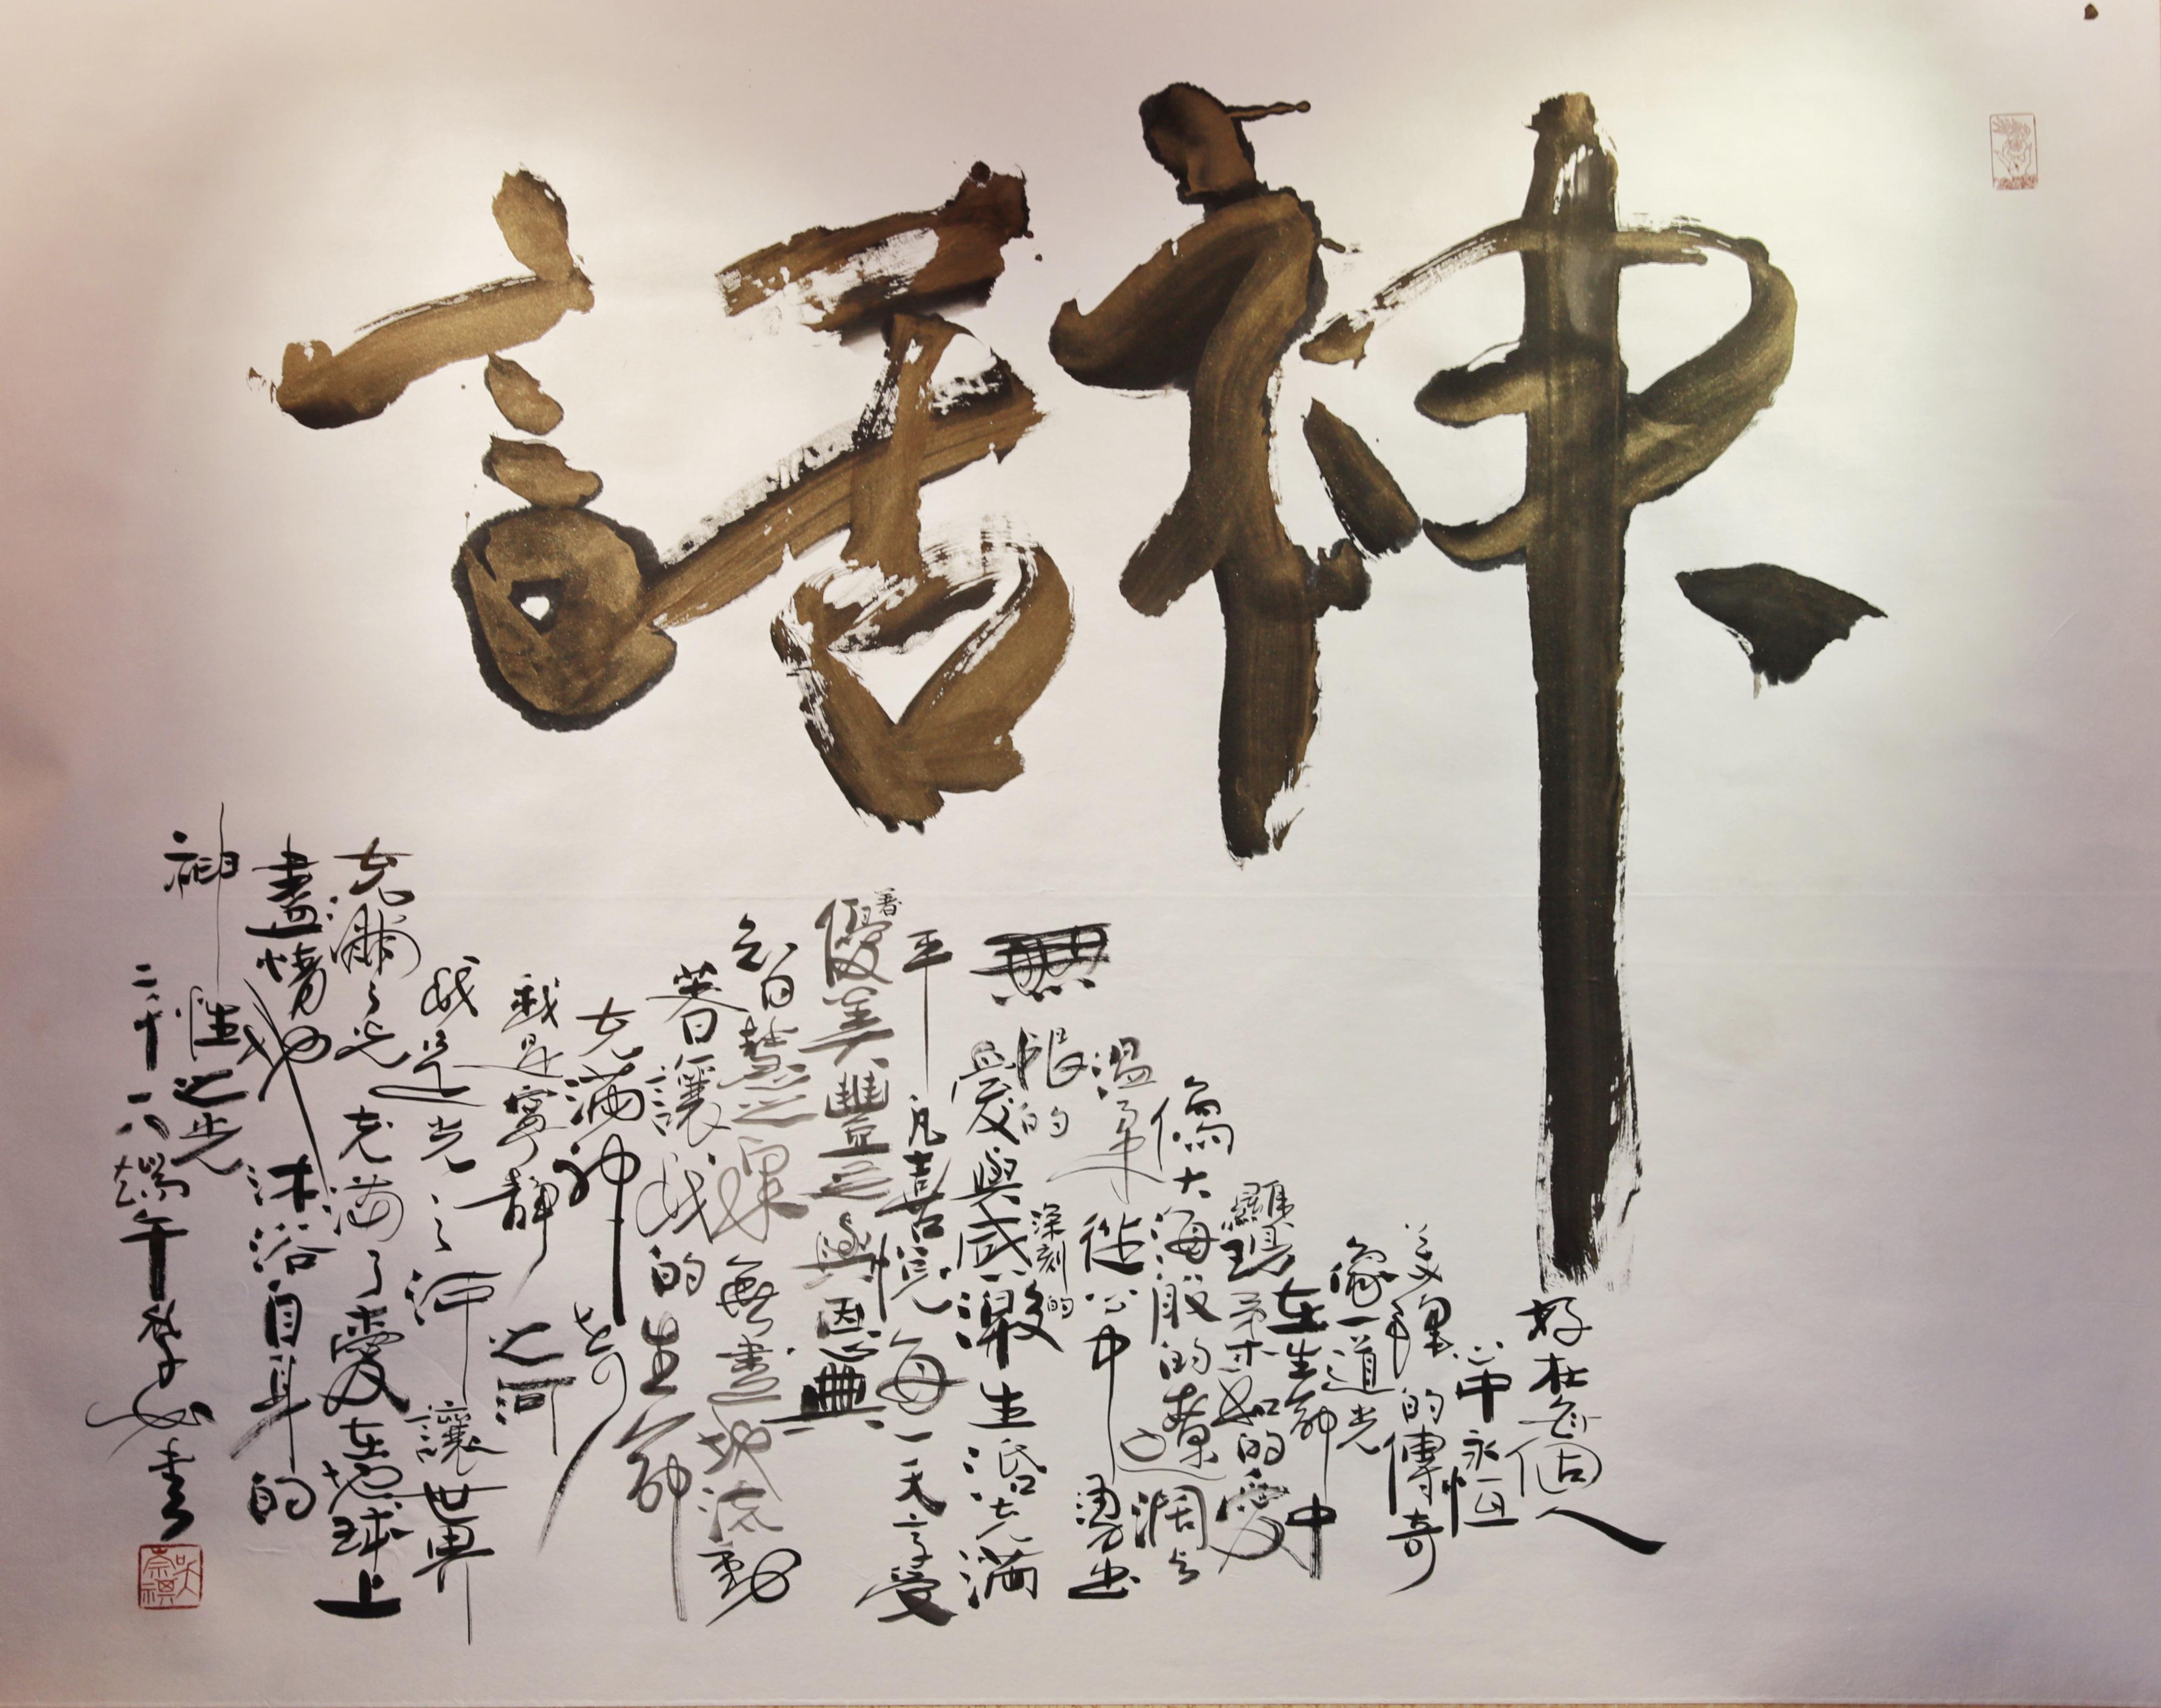 神話
好在每個人
心中永恆
美輝的傳奇
像一道光
在生命中
顯現弟木如的愛
像大海般的遼闊與
溫柔從心中湧出
無限的深刻的
愛與感激生活充滿
平凡喜悅每一天享受著
優美豐盈與恩典
智慧之果無盡地流動
著讓我的生命
充滿神奇
我是寧靜之河
我是光之河讓世界
充滿了光充滿了愛在地球上
盡情地沐浴自身的
神性之光
二千十六端午